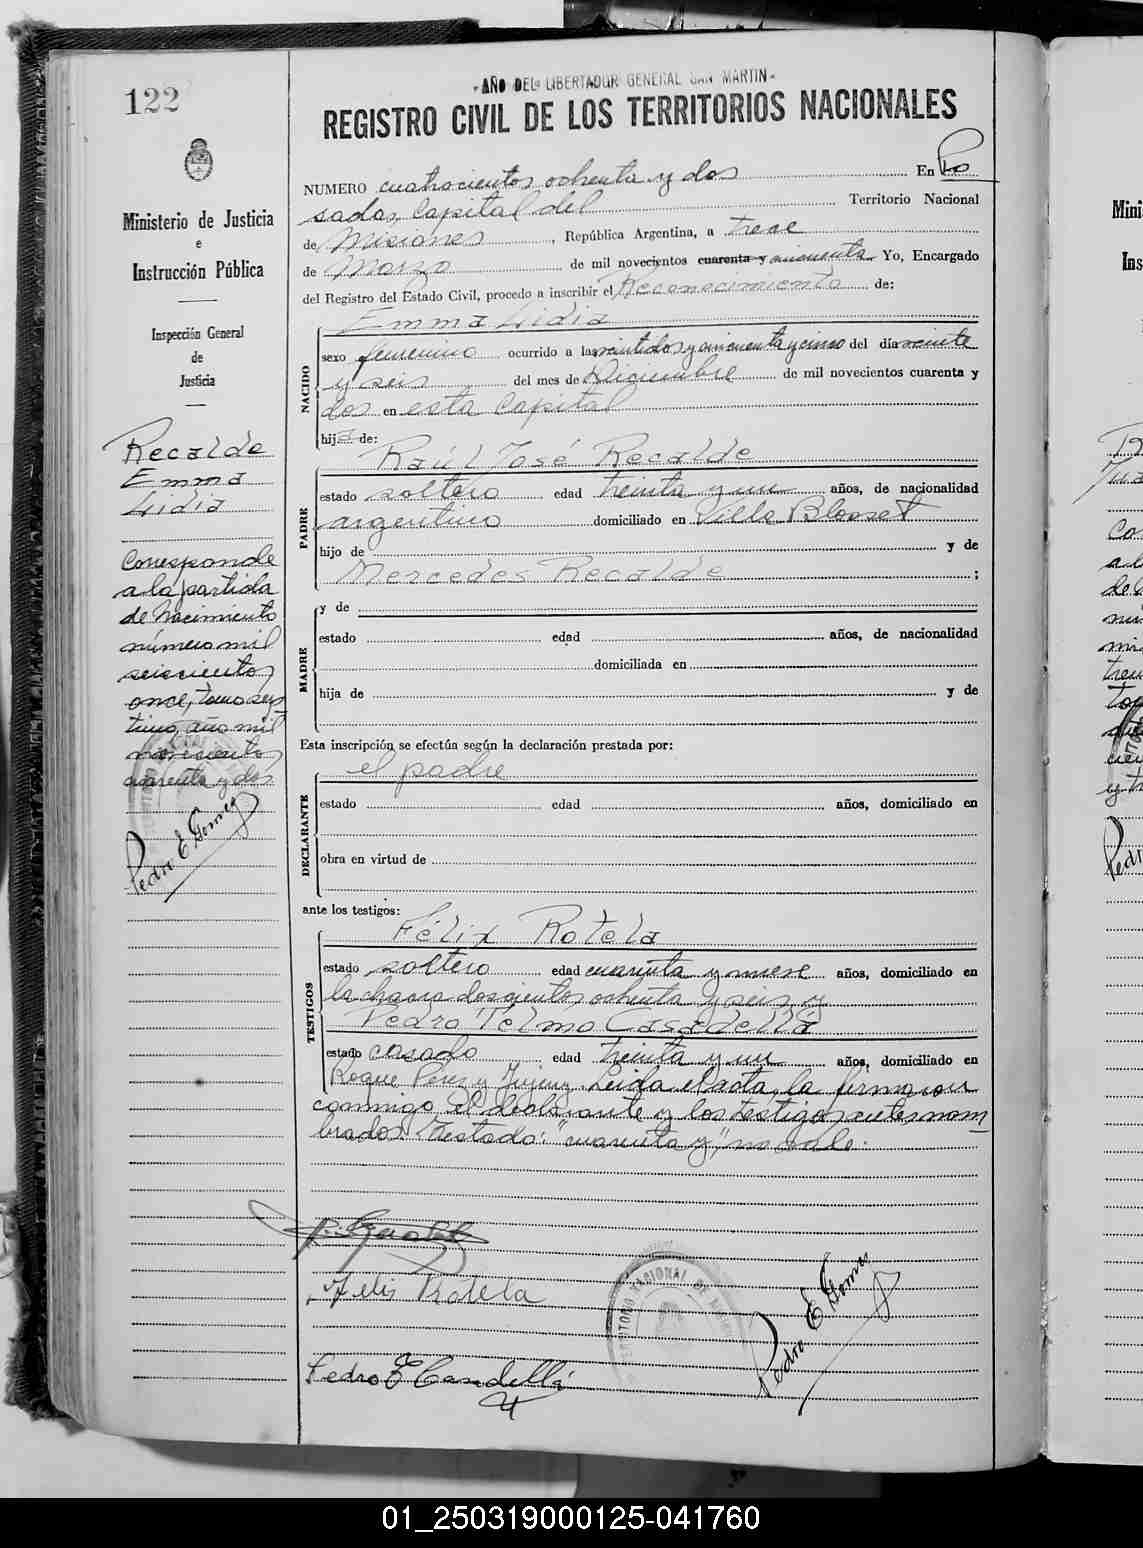 122
- AÑO DEL LIBERTADOR GENERAL SAN MARTIN -
REGISTRO CIVIL DE LOS TERRITORIOS NACIONALES
Ministerio de Justicia
e
Instrucción Pública
Inspección General
de
Justicia
Recalde
Emma
Lidia
Corresponde
a la partida
de Nacimiento
número mil
seiscientos
once, tomo sep
timo, año mil
novecientos
cuarenta y dos
Pedro E Gomez
NUMERO cuatrocientos ochenta y dos En Po
sadas, Capital del Territorio Nacional
de Misiones, República Argentina, a trece
de Marzo de mil novecientos cuarenta y cincuenta Yo, Encargado
del Registro del Estado Civil, procedo a inscribir el Reconocimiento de:
Emma Lidia
NACIDO
sexo femenino ocurrido a las veintidos y cincuenta y cinco del día veinte
y seis del mes de Diciembre de mil novecientos cuarenta y
dos en esta Capital
hija de:
Raúl José Recalde
PADRE
estado soltero edad treinta y un años, de nacionalidad
argentino domiciliado en Villa Blosset
hijo de y de
Mercedes Recalde ;
MADRE
y de
estado edad años, de nacionalidad
domiciliada en
hija de y de
Esta inscripción se efectúa según la declaración prestada por:
el padre
DECLARANTE
estado edad años, domiciliado en
obra en virtud de
ante los testigos:
Félix Rotela
TESTIGOS
estado soltero edad cuarenta y nueve años, domiciliado en
la chacra doscientos ochenta y seis y
Pedro Telmo Casadellá
estado casado edad treinta y un años, domiciliado en
Roque Perez y Jujuy. Leida el acta, la firmaron
conmigo el declarante y los testigos antes nom
brados. Testado: "cuarenta y", no vale.
Felis Rotela
Pedro T Casadellá
TERRITORIO NACIONAL DE
Pedro E Gomez
Mini
Ins
01_250319000125-041760